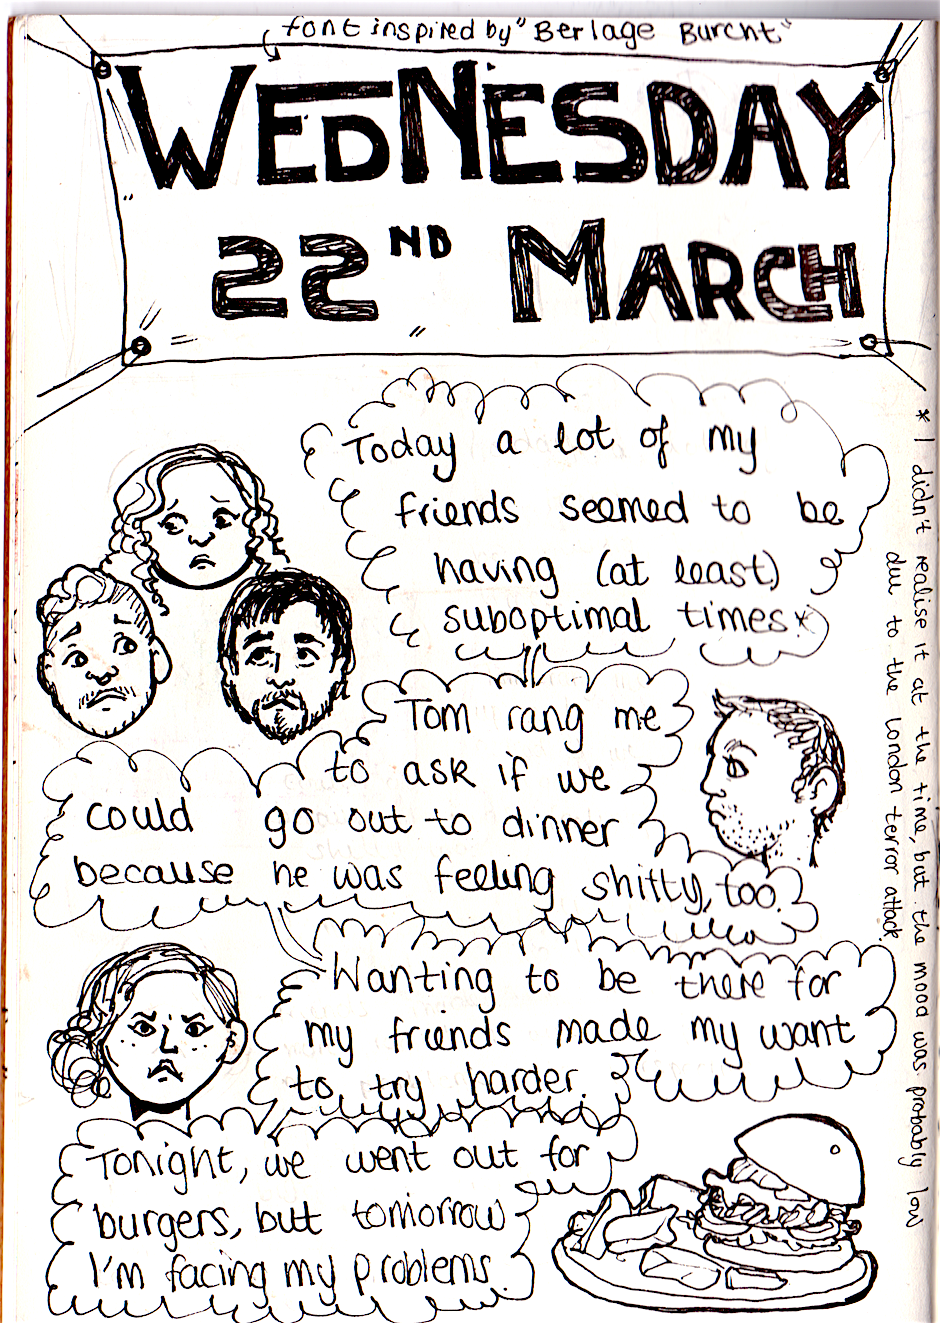 font inspired by "Berlage Burcht"
WEDNESDAY
22ND MARCH
Today a lot of my
friends seemed to be
having (at least)
suboptimal times*
Tom rang me
to ask if we
could go out to dinner
because he was feeling shitty, too.
Wanting to be there for
my friends made my want
to try harder.
Tonight, we went out for
burgers, but tomorrow
I'm facing my problems.
* I didn't realise it at the time, but the mood was probably low
due to the London terror attack.